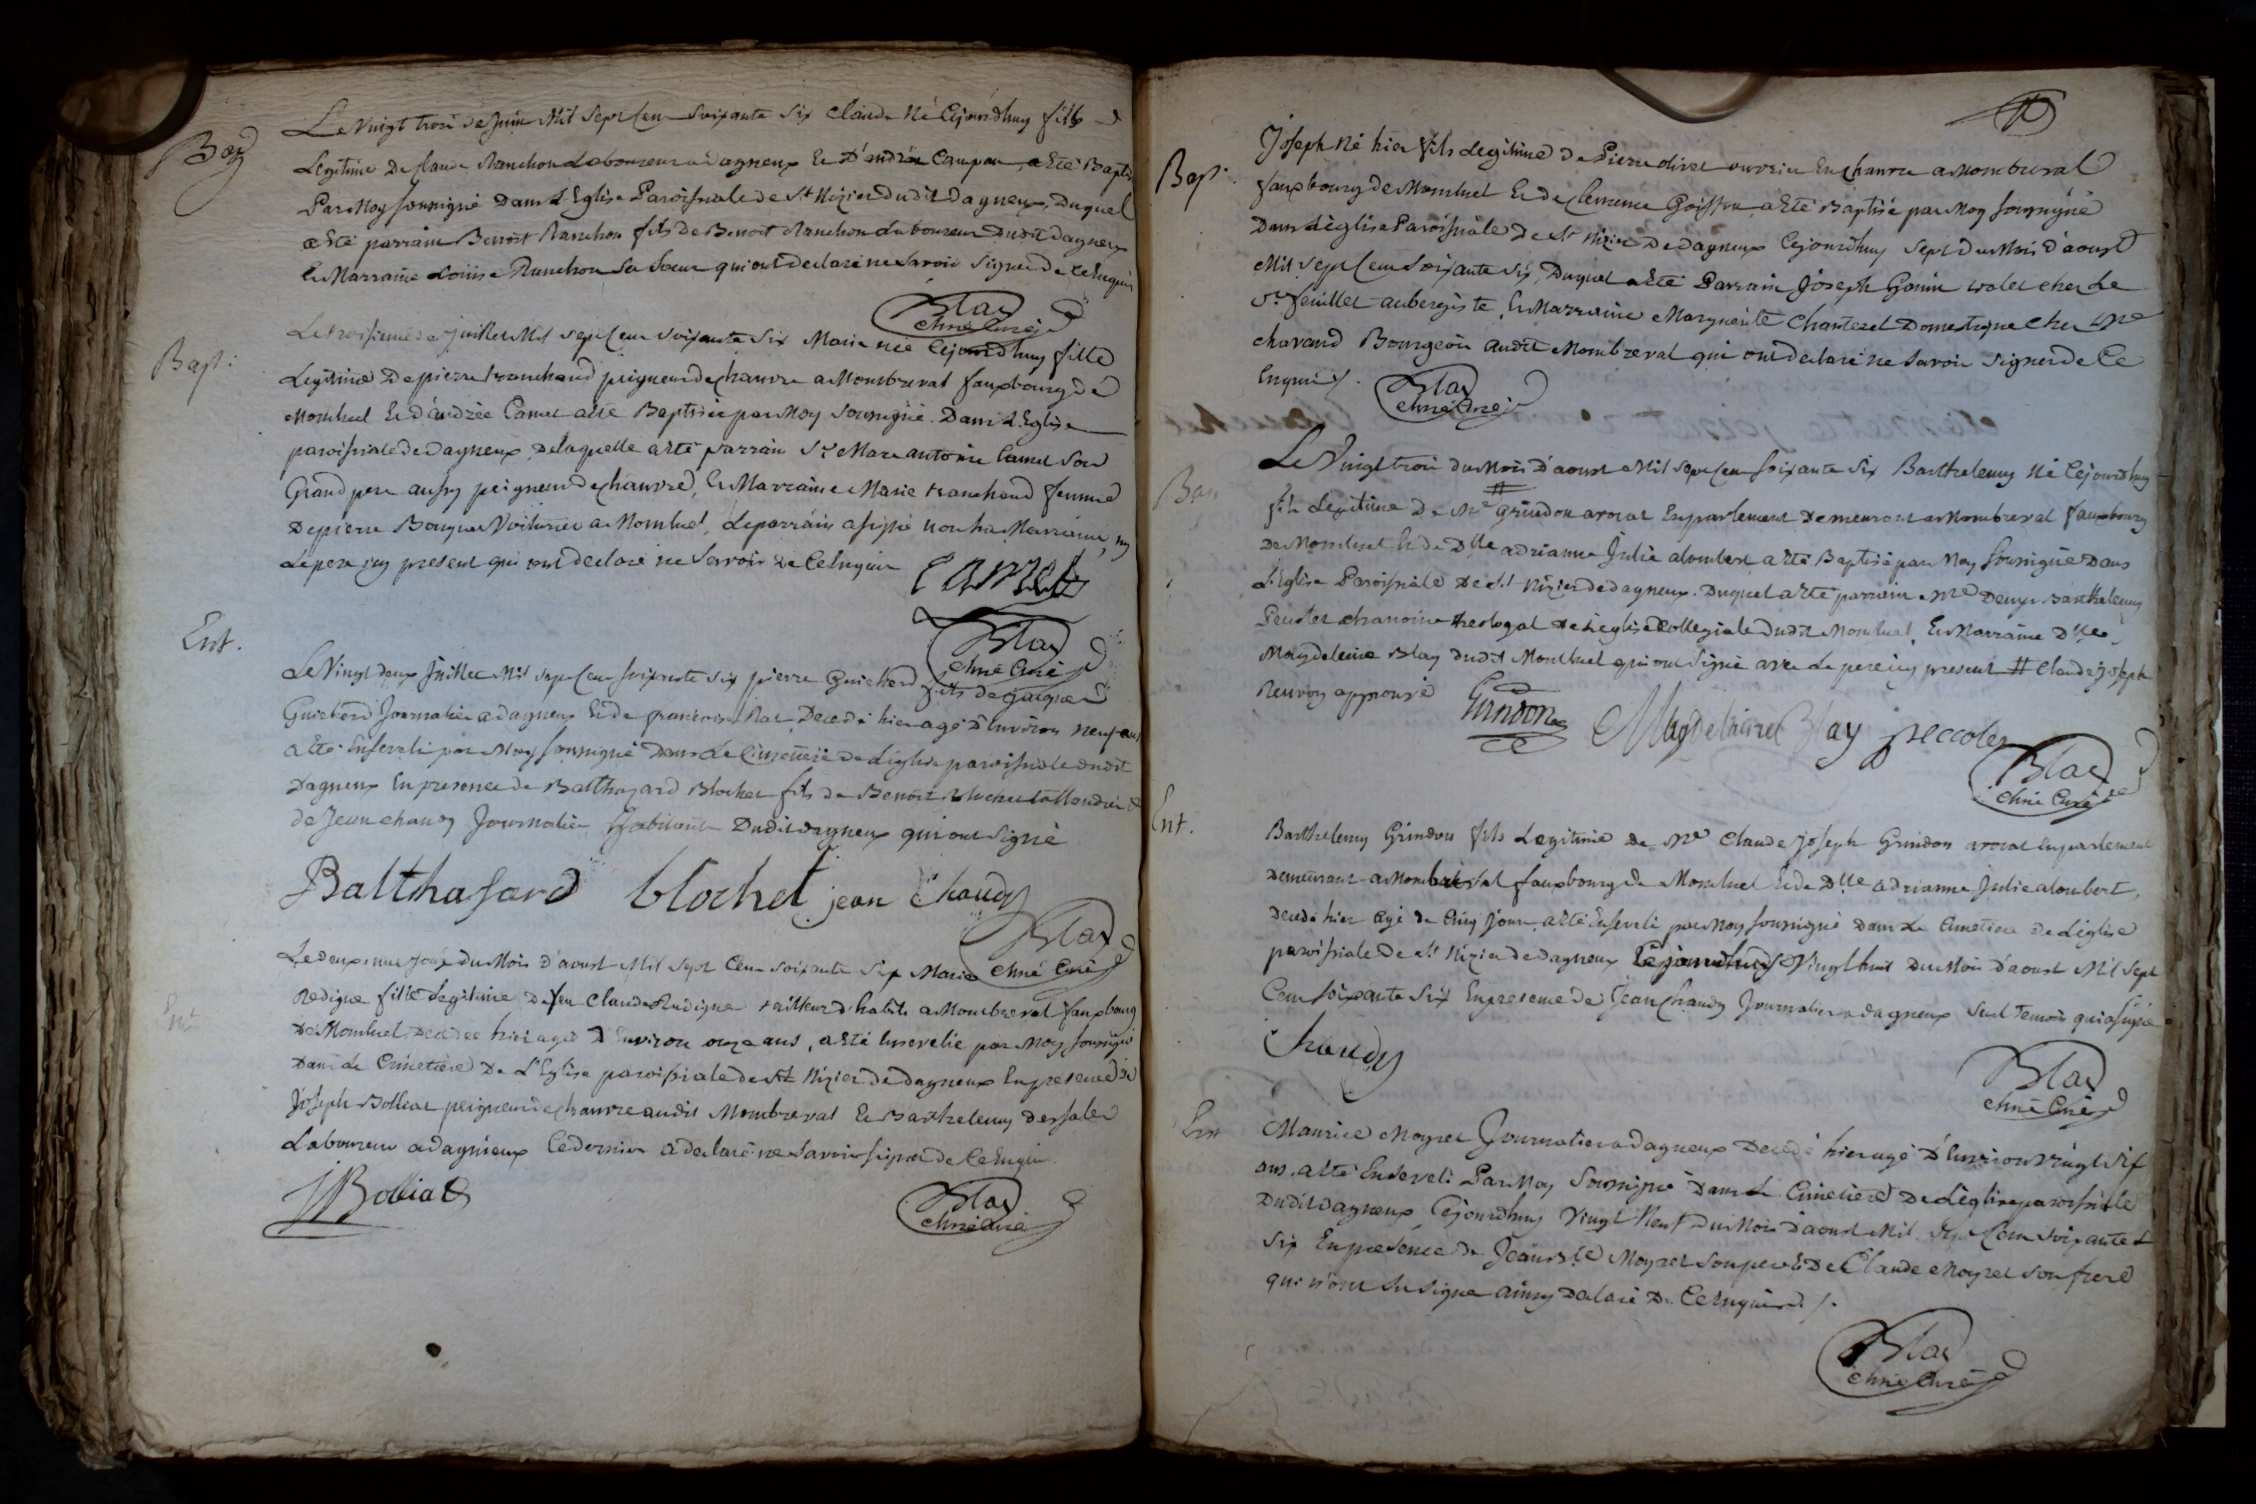 Bap
Le Vingt trois de Juin Mil Sept Cent Soixante Six Claude Né Cejourdhuy fils
Legitime De Claude Ranchon Laboureur a dagneux Et D'andrée Campan, a Eté Baptisé
Par Moy soussigné Dans L'Eglise Paroissiale de St Nizier Dudit Dagneux, Duquel
a Eté parrain Benoit Ranchon fils De Benoit Ranchon Laboureur Dudit Dagneux
Et Marraine Loüise Ranchon Sa Soeur qui ont declaré ne Savoir Signer de Ce Enquis
Blay
chne Curé
Bapt:
Le troisieme de Juillet Mil Sept Cent Soixante Six Marie née Cejourdhuy fille
Legitime De pierre tranchand peigneur de Chanvre a Montbreval fauxbourg de
Montluel Et d'andrée Camet a été Baptisée par Moy Soussigné Dans L'Eglise
paroissiale de Dagneux, De laquelle a été parrain Sr Marc antoine Camet Son
Grand pere aussy peigneur de chanvre, Et Marraine Marie tranchand femme
De pierre Voiturier a Montluel, Le parrain a signé non la Marraine, ny
Le pere icy present qui ont declaré ne Savoir de Ce Enquis
CAMET
Blay
chne Curé
Ent.
Le Vingt deux Juillet Mil Sept Cent Soixante Six pierre Guichard fils de
Guichard Journalier a dagneux Et de françoise Decedé hier agé D'Environ neuf ans
a Eté Enseveli par Moy Soussigné Dans Le Cimetiere de L'église paroissiale dudit
Dagneux En presence de Balthazard Blochet fils de Benoit Blochet &
de Jean chaudy Journalier habitants Dudit dagneux qui ont Signé
Balthasard blochet jean Chaudy
Blay
chne Curé
Ent
Le deuxieme Jour du Mois d'aoust Mil Sept Cent Soixante Six Marie
Redigue fille Legitime De feu Claude Redigue tailleur d'habits a Montbreval fauxbourg
De Montluel Decedée hier agée D'Environ onze ans, a Eté Ensevelie par Moy Soussigné
Dans Le Cimetiere De L'Eglise paroissiale de St Nizier de Dagneux En presence de
Joseph Bolliat peigneur de chanvre audit Montbreval Et Barthelemy
Laboureur a dagnieux Ce dernier a declaré ne Savoir signer de Ce Enquis
JBolliat
Blay
chne Curé
Bapt.
Joseph Né hier fils Legitime de Pierre olivet ouvrier En Chanvre a Montbreval
fauxbourg de Montluel Et de Clemence Goiffon a Eté Baptisé par Moy Soussigné
Dans L'église Paroissiale De St Nizier De Dagneux Cejourdhuy Sept Du Mois D'aoust
Mil Sept Cent Soixante Six, Duquel a Eté Parrain Joseph Gonin valet chez Le
Sr feuillet aubergiste, Et Marraine Marguerite Chanterel Domestique chez Me
chavand Bourgeois audit Montbreval qui ont declaré ne Savoir Signer de Ce
Enquis /.
Blay
chne Curé
Bap
Le Vingt trois du Mois D'aoust Mil Sept Cent Soixante Six Barthelemy Né Cejourdhuy
fils Legitime De Me # Grindon avocat En parlement Demeurant a Montbreval fauxbourg
De Montluel Et de Dlle adrianne Julie aloubert a Eté Baptisé par Moy Soussigné Dans
L'Eglise Paroissiale De St Nizier de dagneux. Duquel a Eté parrain Me Barthelemy
chanoine theologal de L'église Collegiale Dudit Montluel, Et Marraine Dlle
Magdeleine Blay Dudit Montluel qui ont Signé avec Le pere icy present # Claude joseph
Renvoy approuvé
Grindon Magdelaine Blay peccolet
Blay
chne Curé
Ent.
Barthelemy Grindon fils Legitime de Me Claude Joseph Grindon avocat En parlement
Demeurant a Montbreval fauxbourg de Montluel Et de Dlle adrianne Julie aloubert,
Decedé hier agé de Cinq Jours, a Eté Enseveli par Moy Soussigné Dans Le Cimetiere de L'église
paroissiale De St Nizier de dagneux Cejourdhuy Vingt huit Du Mois D'aoust Mil Sept
Cent Soixante Six En presence de Jean Chaudy Journalier a dagneux Seul temoin qui a signé
Chaudy
Blay
chne Curé
Ent
Maurice Moyret Journalier a dagneux Decedé hier agé D'Environ Vingt Six
ans, a Eté Enseveli Par Moy Soussigné Dans Le Cimetiere De L'église paroissiale
Dudit dagneux, Cejourdhuy Vingt Neuf Du Mois D'aoust Mil Sept Cent Soixante &
Six En presence de Moyret Son pere Et De Claude Moyret Son frere
qui n'ont Su Signer ainsy declaré De Ce Enquis /.
Blay
chne Curé